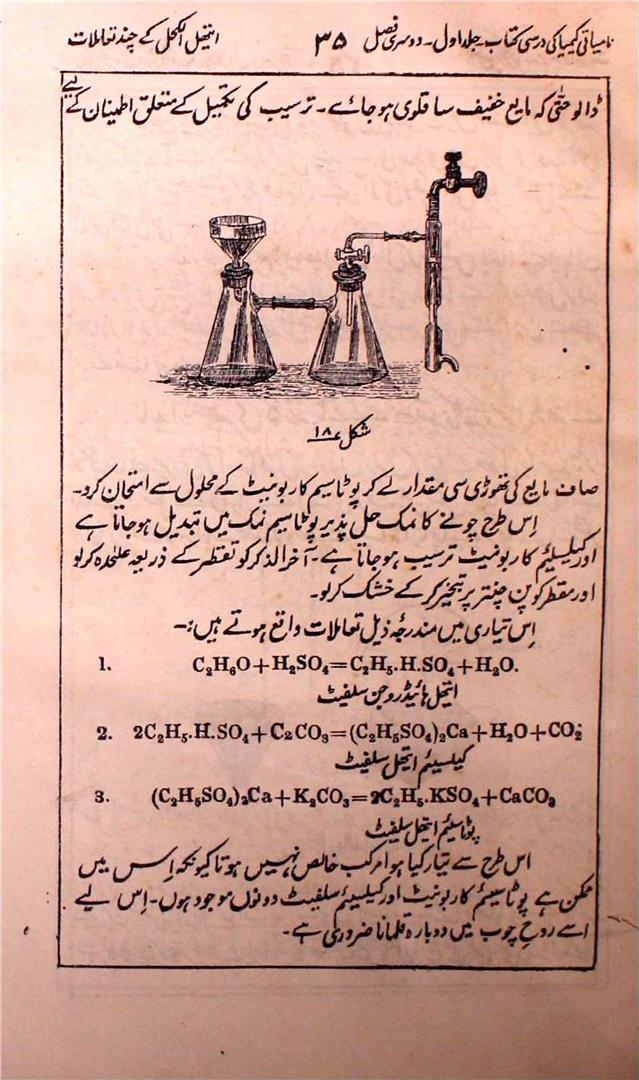 نامیاتی کیمیا کی درسی کتاب۔ جلد اول۔ دوسری فصل ۳۵ ایتھل الکحل کے چند تعاملات
ڈالو حتٰی کہ مایع خفیف سا قلوی ہو جائے۔ ترسیب کی تکمیل کے متعلق اطمینان کے لیے
شکل ۱۸
صاف مایع کی تھوڑی سی مقدار لے کر پوٹاسیم کاربونیٹ کے محلول سے امتحان کرو۔
اِس طرح چونے کا نمک حل پذیر پوٹاسیم نمک میں تبدیل ہو جاتا ہے
اور کیلسیئم کاربونیٹ ترسیب ہو جاتا ہے۔ آخر الذکر کو تقطر کے ذریعہ علٰحدہ کر لو
اور مقطر کو پن جنتر پر تبخیر کر کے خشک کر لو۔
اِس تیاری میں مندرجۂ ذیل تعاملات واقع ہوتے ہیں:۔
1. C₂H₆O+H₂SO₄=C₂H₅.H.SO₄+H₂O.
ایتھل ہائیڈروجن سلفیٹ
2. 2C₂H₅.H.SO₄+C₂CO₃=(C₂H₅SO₄)₂Ca+H₂O+CO₂
کیلسیئم ایتھل سلفیٹ
3. (C₂H₅SO₄)₂Ca+K₂CO₃=2C₂H₅.KSO₄+CaCO₃
پوٹاسیئم ایتھل سلفیٹ
اس طرح سے تیار کیا ہوا مرکب خالص نہیں ہوتا کیونکہ اِس میں
ممکن ہے پوٹاسیئم کاربونیٹ اور کیلسیئم سلفیٹ دونوں موجود ہوں۔ اِس لیے
اسے روحِ چوب میں دوبارہ قلمانا ضروری ہے۔